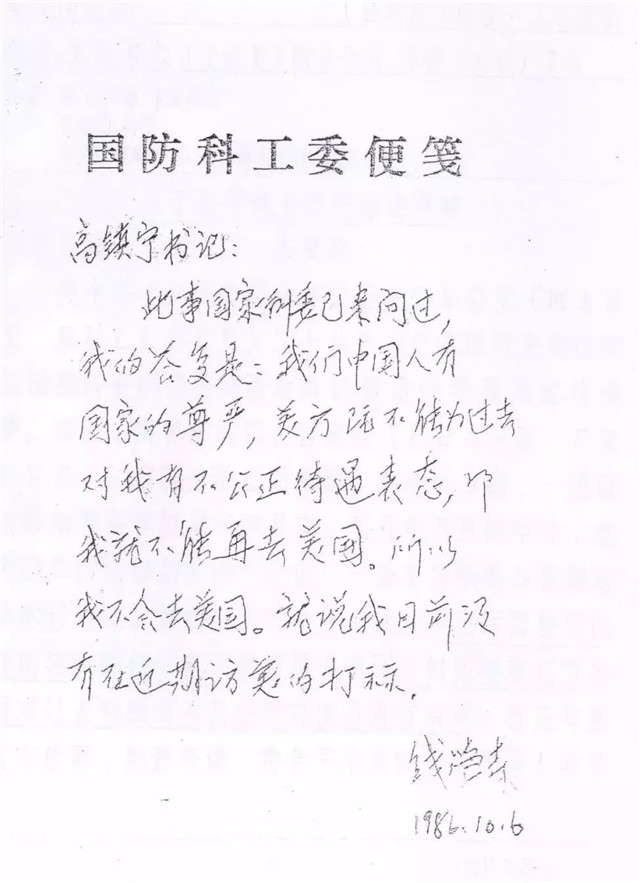 国防科工委便笺
高镇宁书记：
此事国家科委引来问过，
我的答复是：我们中国人有
国家的尊严，美方既不能为过去
对我有不公正待遇表态，那
我就不能再去美国。所以
我不会去美国。就说我目前没
有在近期访美的打算。
钱学森
1986.10.6